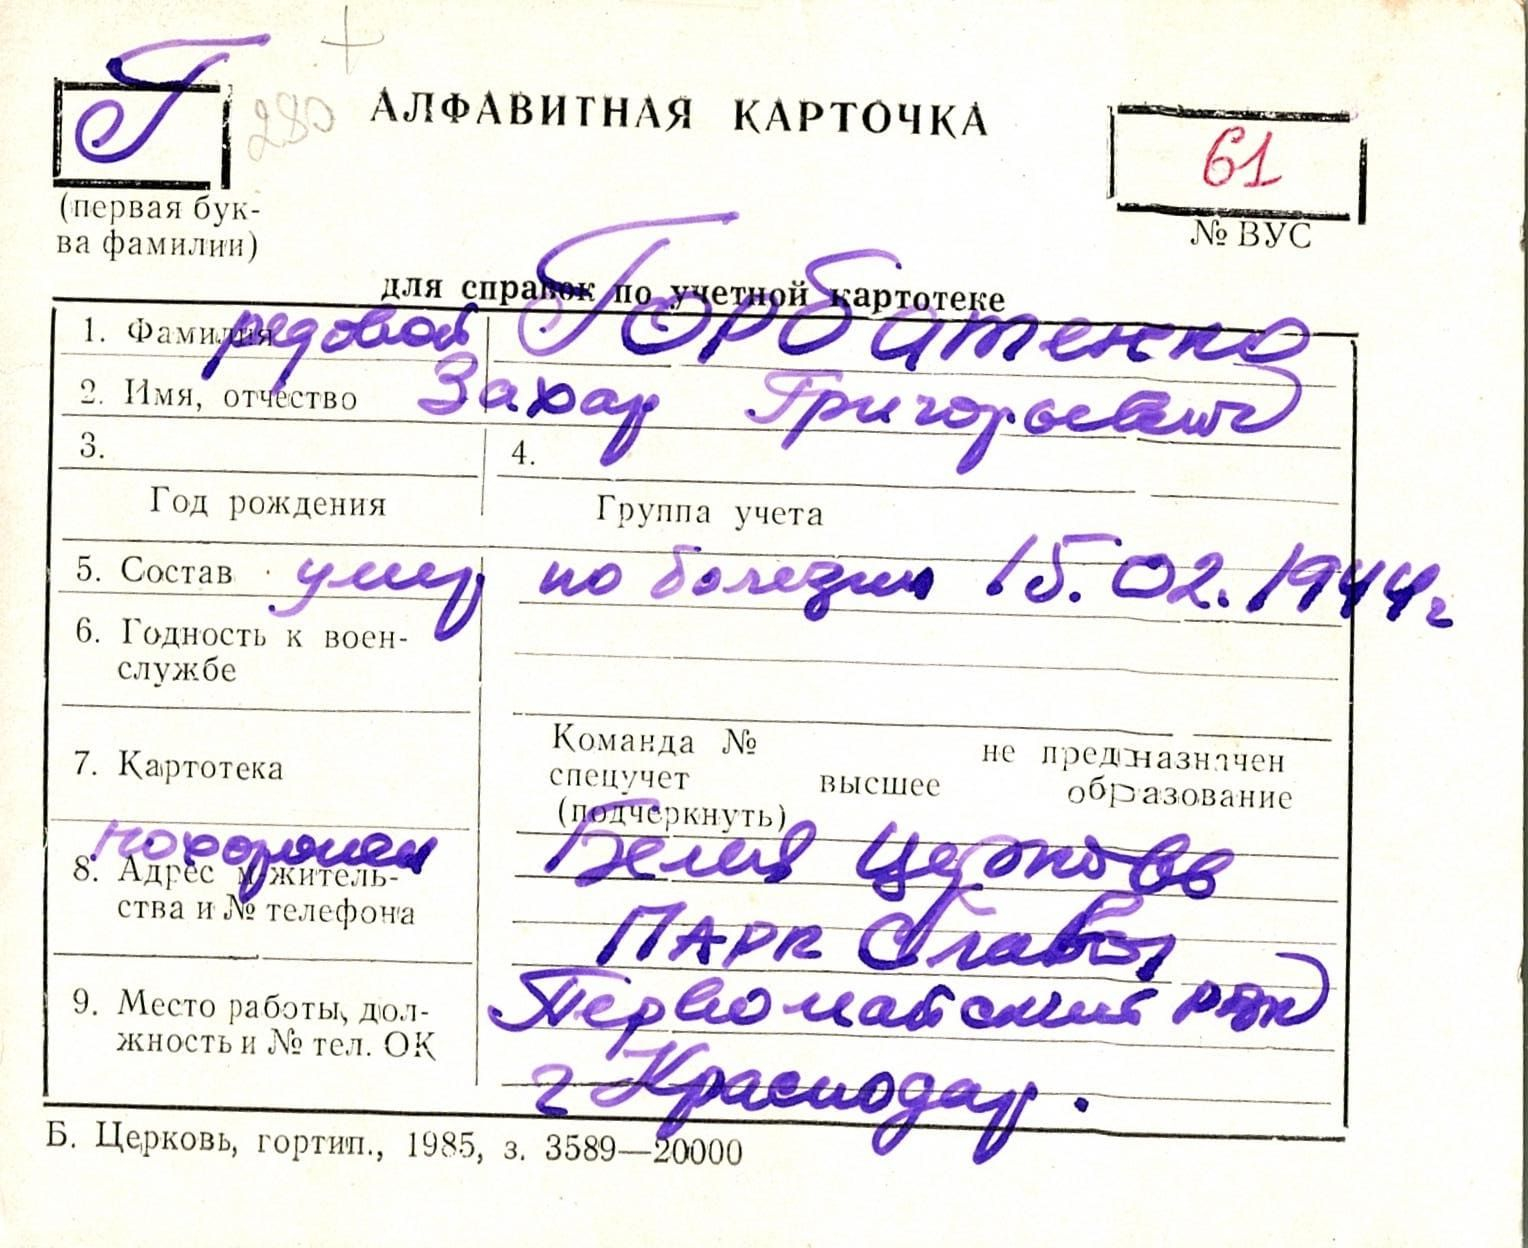 Г
280
АЛФАВИТНАЯ КАРТОЧКА
61
(первая бук-
ва фамилии)
№ ВУС
для справок по учетной картотеке
1. Фамилия рядовой Горбатенко
2. Имя, отчество Захар Григорьевич
3. 4.
Год рождения Группа учета
5. Состав умер по болезни 15.02.1944г
6. Годность к воен-
службе
7. Картотека
Команда № не предназначен
спецучет высшее образование
(подчеркнуть)
похоронен Белая Церковь
8. Адрес м/житель-
ства и № телефона
Парк Славы
9. Место работы, дол-
жность и № тел. ОК
Первомайский рвк
г Краснодар.
Б. Церковь, гортип., 1985, з. 3589—20000